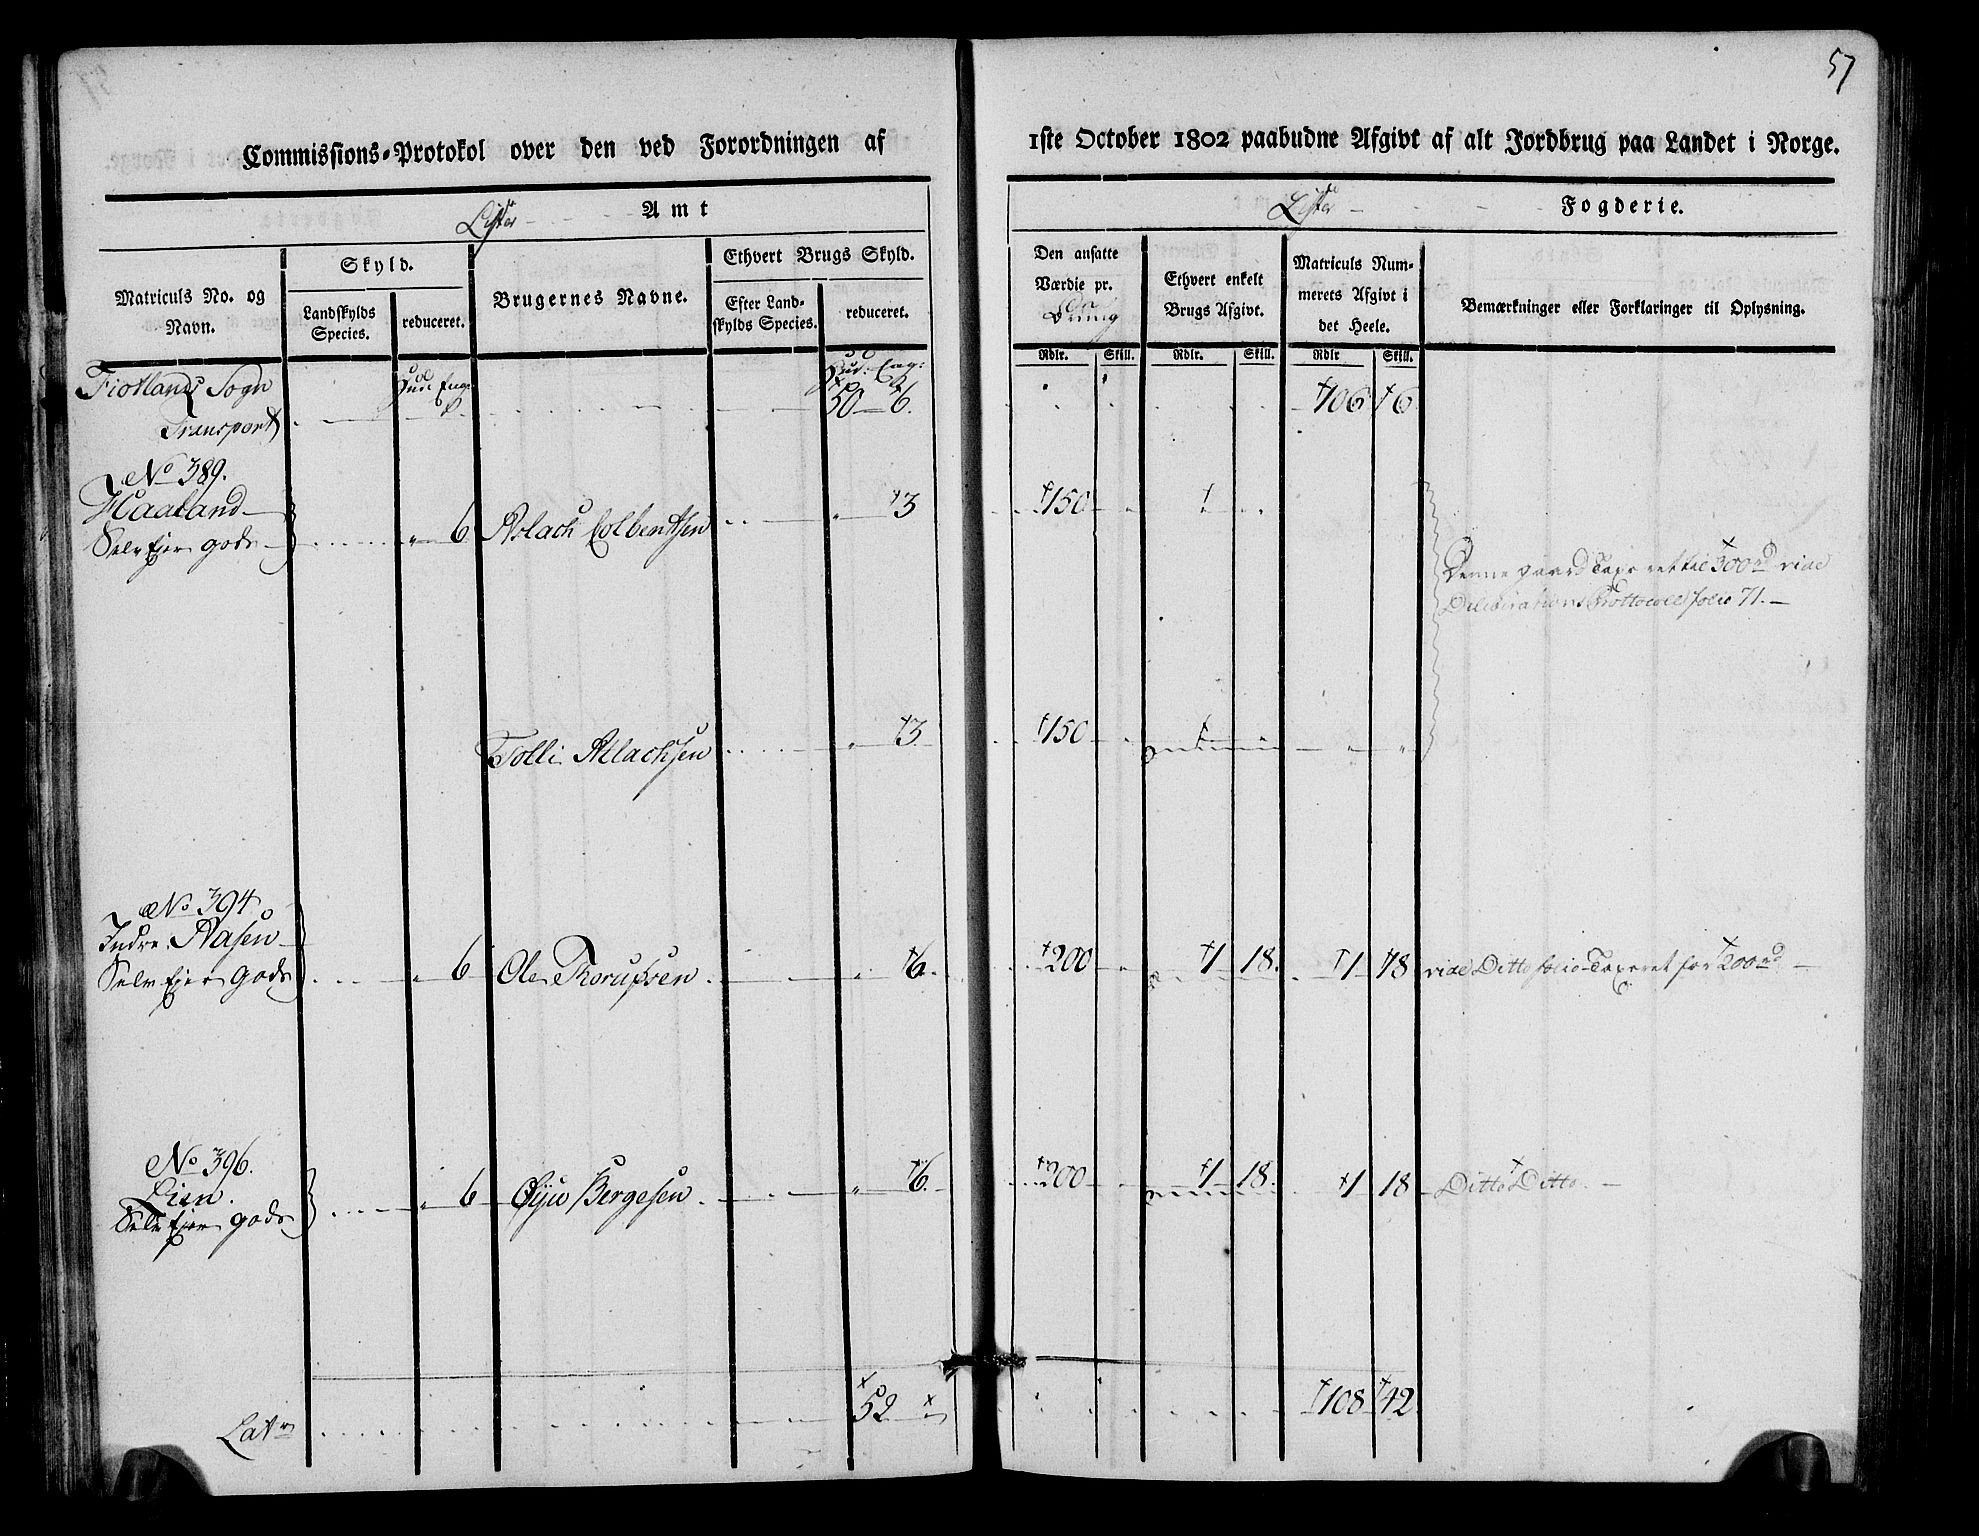 57
Commissions-Protokol over den ved Forordningen af
1ste October 1802 paabudne Afgivt af alt Jordbrug paa Landet i Norge.
Lister Amt
Lister Fogderie.
Matriculs No. og Navn.
Skyld.
Landskylds Species.
reduceret.
Brugernes Navne.
Ethvert Brugs Skyld.
Efter Landskylds Species.
reduceret.
Den ansatte Værdie pr.
Ethvert enkelt Brugs Afgivt.
Matriculs Nummerets Afgivt i det Heele.
Bemærkninger eller Forklaringer til Oplysning.
Rdlr. Skill. Rdlr. Skill. Rdlr Skill.
Fiotlands Sogn Hud: Eng: Hud: Eng:
Transport 50 6. 106 6
No 389.
Haaland
Selv Ejer gods 6 Aslach Colbentsen 3 150
Denne gaard Taxeret til 300rd vide
Deliberations Prottocoll folio 71.
Tolli Asla­chsen 3 150
No 394
Indre Aasen
Selv Ejer gods 6 Ole Thorufssen 6. 200 1 18. 1 18 vide Ditto folio Taxeret for 200rd
No 396.
Lien.
Selv Ejer gods 6 Bergesen 6. 200 1 18. 1 18 Ditto Ditto.
Latr 52 108 42